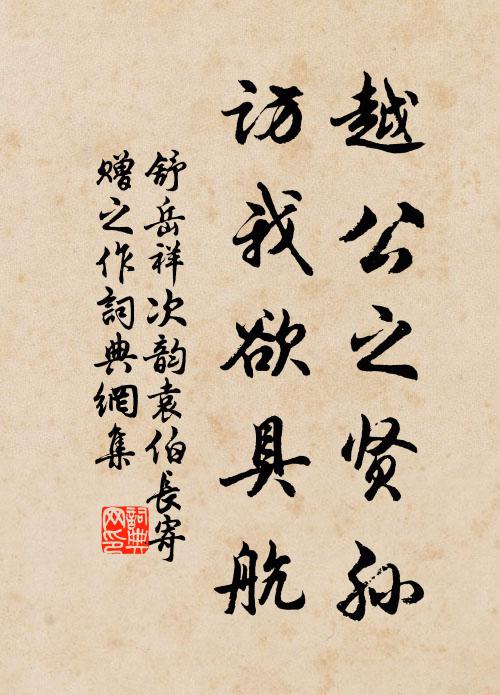 越公之贤孙
访我欲具航
舒岳祥次韵袁伯長寄
赠之作詞典網集
詞典网印